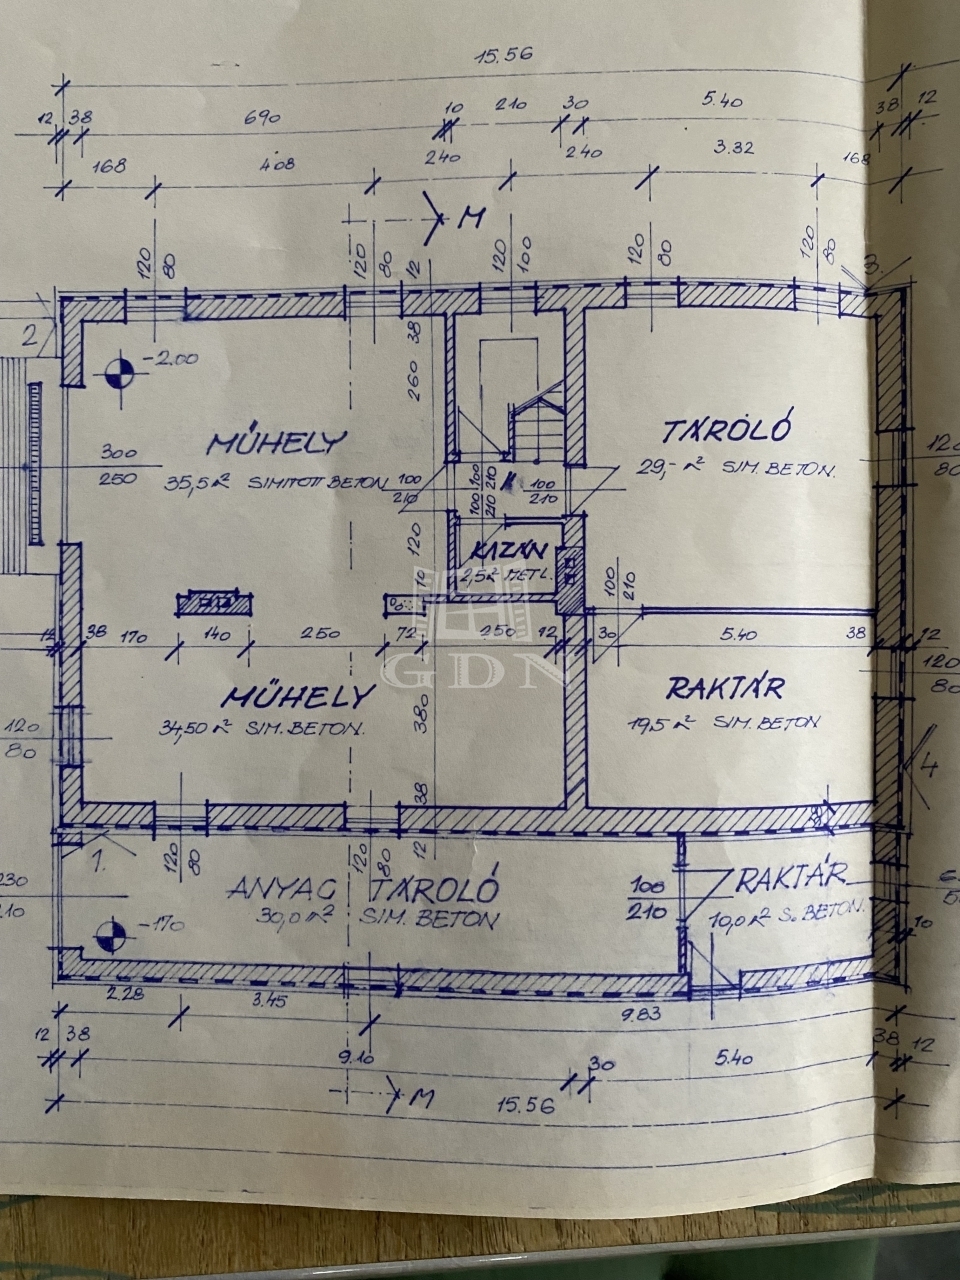 15.56
12 38 690 10 210 30 5.40 38 12
168 408 240 240 3.32 168
M
120 80 120 80 12 120 100 120 80 120 80
3.
2
-2.00
38
260
MŰHELY
35,5 m² SIMITOTT BETON
300
250
100
210
100 210
100 210
100
210
TÁROLÓ
29,- m² SIM. BETON.
120
80
120
10
KAZÁN
2,5 m² METL.
100
210
12 38 170 140 250 72 250 12 30 5.40 38 12
GDN
120
80
MŰHELY
34,50 m² SIM. BETON.
380
RAKTÁR
19,5 m² SIM. BETON
120
80
4
38
38
1.
120 80
120 80
12
230
210
ANYAG TÁROLÓ
30,0 m² SIM. BETON
100
210
RAKTÁR
10,0 m² S. BETON.
10
-170
2.28 3.45 9.83
12 38 9.10 30 5.40 38 12
M
15.56